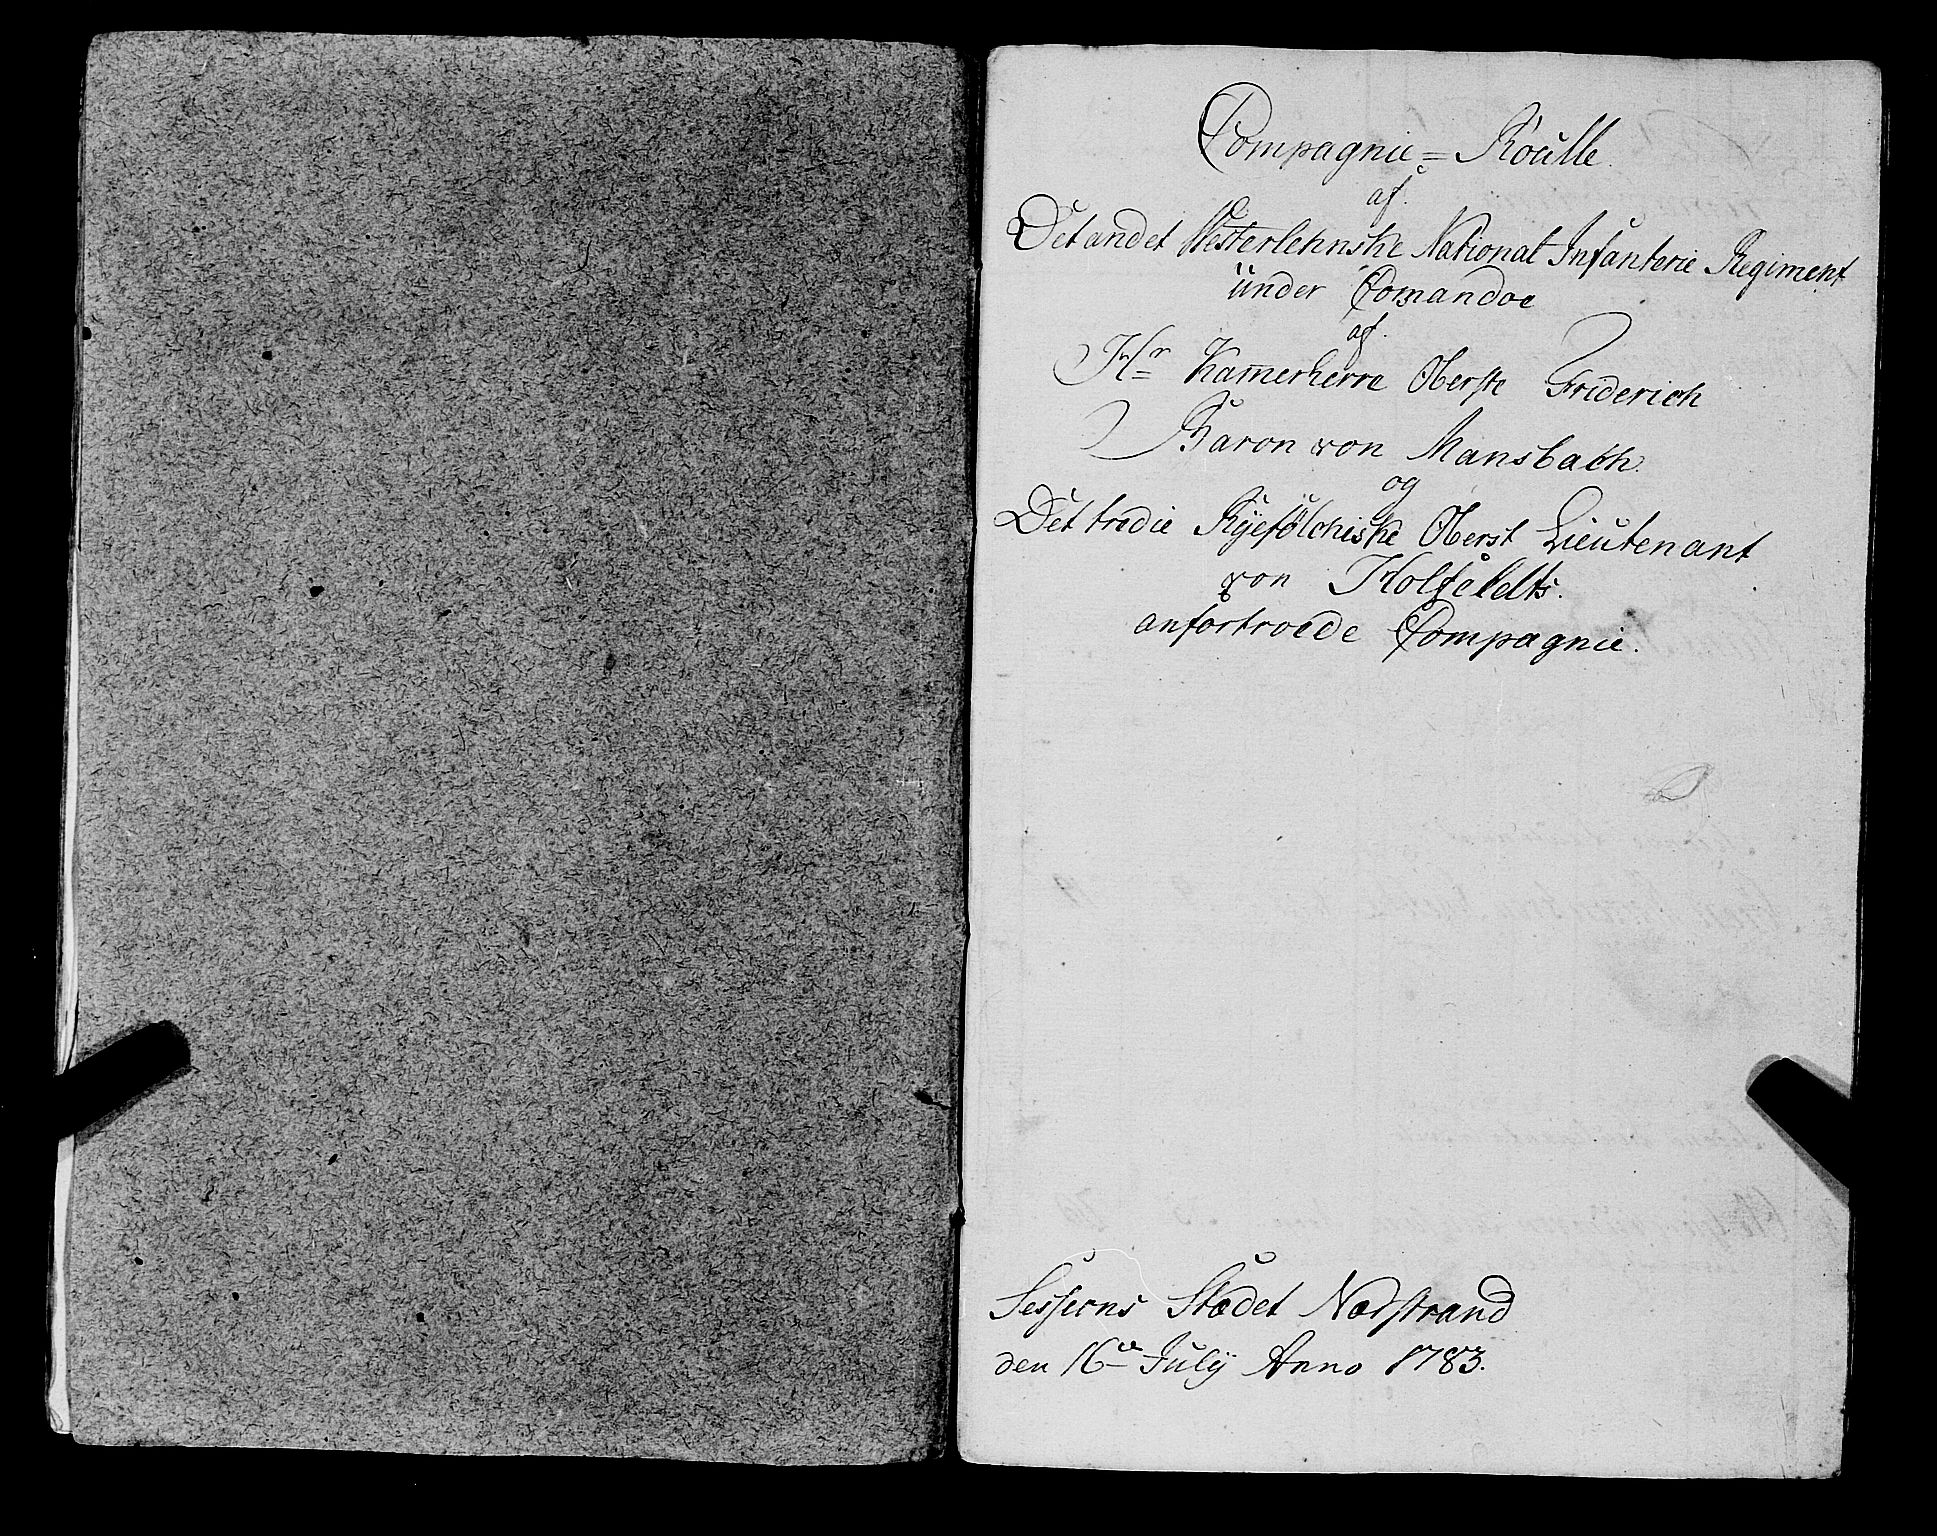 Compagnie = Roulle.
af.
Det andet Westerlehnske National Infanterie Regiment
under Comandoe
af.
Hr Kamerherre Oberste Friderich
Baron von Mansbach.
og
Det tredie Ryefölchiske Oberst Lieutenant
von Holfeldts.
anfortroede Compagnie.
Sessions Stædet Nærstrand
den 16de July Anno 1783.